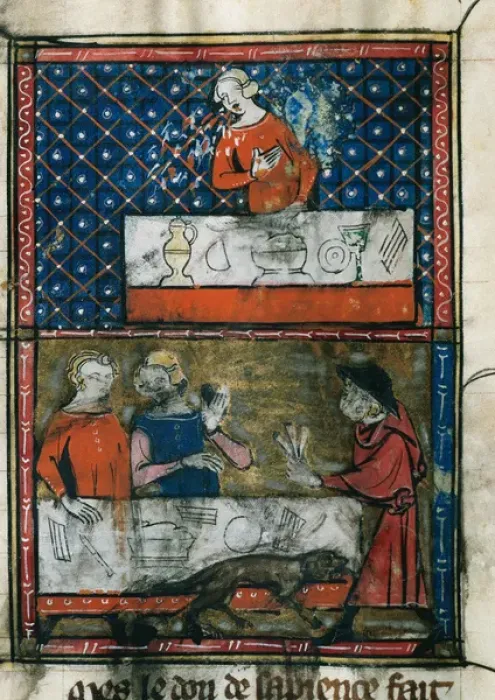 apres le don de sapience fait